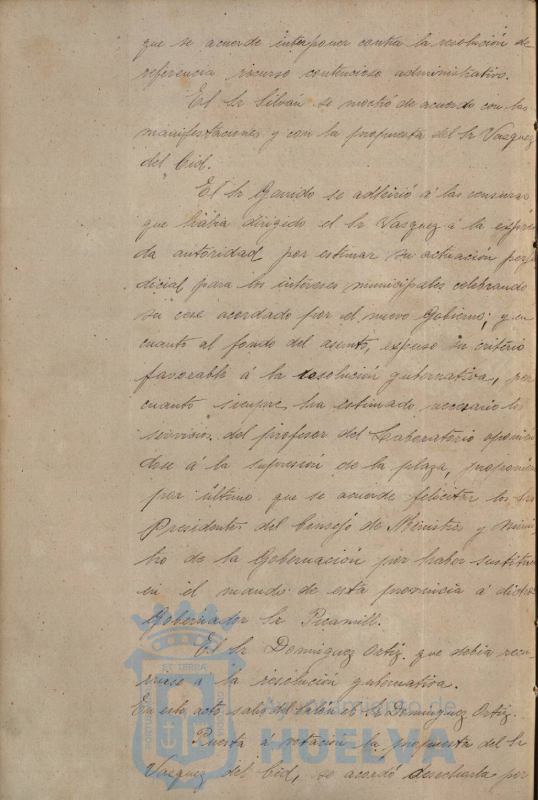 que se acuerde interponer contra la resolución de
referencia recurso contencioso administrativo.
El Sr Silván se mostró de acuerdo con las
manifestaciones y con la propuesta del Sr Vasquez
del Cid.
El Sr Garrido se adhirió á las censuras
que había dirigido el Sr Vasquez á la expresa
da autoridad por estimar su actuación perju
dicial para los intereses municipales celebrando
su cese acordado por el nuevo Gobierno; y en
cuanto al fondo del asunto, expuso su criterio
favorable á la resolución gubernativa, por
cuanto siempre ha estimado necesario los
servicios del profesor del Laboratorio oponién
dose á la supresión de la plaza, proponien
por último que se acuerde felicitar los Sres
Presidentes del Consejo de Ministros y Minis
tro de la Gobernación por haber sustitui
en el mando de esta provincia á dicho
Gobernador Sr Picamill.
El Sr Dominguez Ortiz que debia recu
rrirse á la resolución gubernativa.
En este acto salió del salón el Sr Dominguez Ortiz.
Puesta á votación la propuesta del Sr
Vasquez del Cid, se acordó desecharla por
ET TERRA
Ayuntamiento de
HUELVA